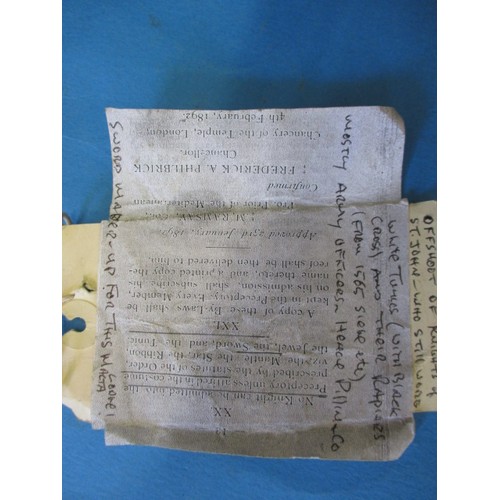 XX.
No Knight can be admitted into the
Preceptory unless attired in the costume
prescribed by the Statutes of the Order,
viz: the Mantle, the Star, the Ribbon,
the Jewel, the Sword and the Tunic
XXI.
A copy of these By-Laws shall be
kept in the Preceptory. Every Member,
on his admission, shall subscribe his
name thereto, and a printed copy the-
reof shall be then delivered to him.
Approved 23rd January, 1892.
: M. RAMSAY, Col.,
Pro. Prior of the Mediterranean
Confirmed
: FREDERICK A. PHILBRICK
Chancellor.
Chancery of the Temple, London,
4th February, 1892.
OFFSHOOT OF KNIGHTS of
ST. JOHN - WHO STILL WORE
WHITE TUNICS (WITH BLACK
CROSS) AND THEIR RAPIERS
(FROM 1565 SIEGE etc)
MOSTLY ARMY OFFICERS - HENCE PILLIN & Co
SWORD MAKER - UP FOR THIS MALTA
LODGE!